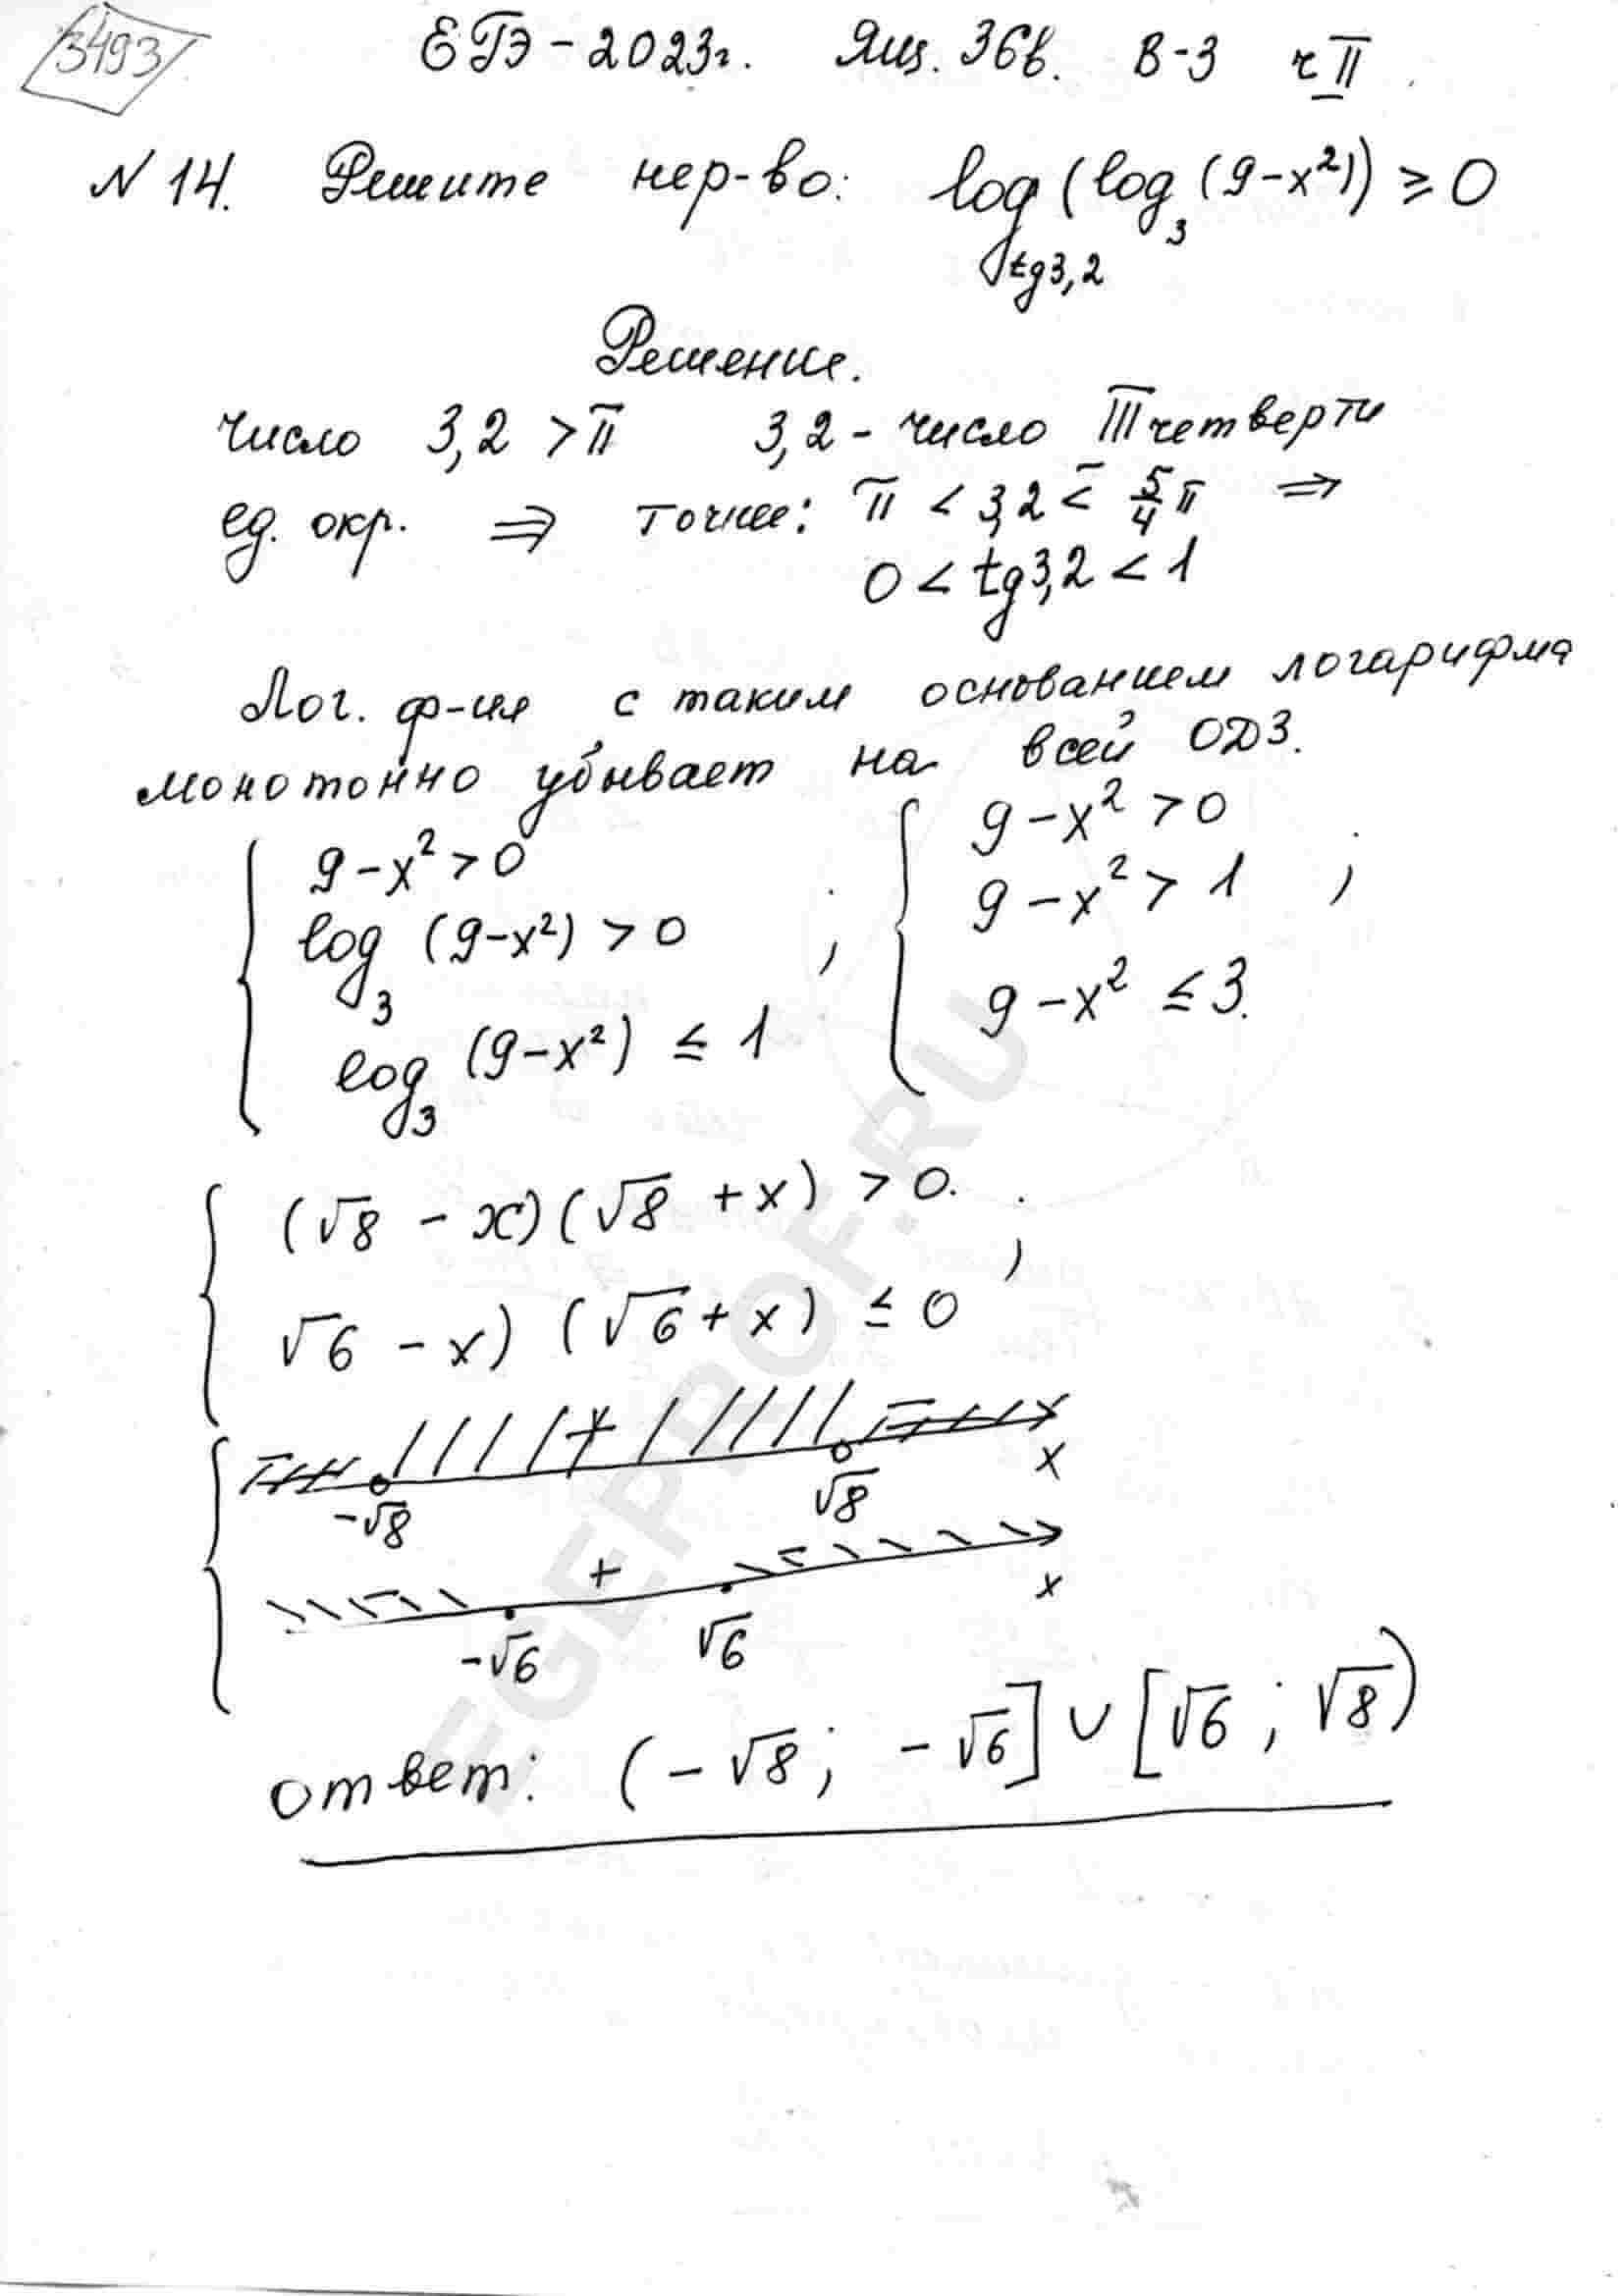 3493
ЕГЭ-2023г. Ящ. 36в. В-3 ч II
N 14. Решите нер-во: log_{tg3,2}(log_3(9-x²)) ≥ 0
Решение.
Число 3,2 > π 3,2 - число III четверти
ед. окр. ⇒ точнее: π < 3,2 < 5/4 π ⇒
0 < tg3,2 < 1
Лог. ф-ия с таким основанием логарифма
монотонно убывает на всей ОДЗ.
{ 9-x² > 0 ; { 9-x² > 0 ;
log_3 (9-x²) > 0 9-x² > 1
log_3 (9-x²) ≤ 1 9-x² ≤ 3.
{ (√8 - x)(√8 + x) > 0. ;
√6 - x) (√6 + x) ≤ 0
- + - x
-√8 √8
- + - x
-√6 √6
ответ: (-√8; -√6] ∪ [√6; √8)
EGEPROF.RU